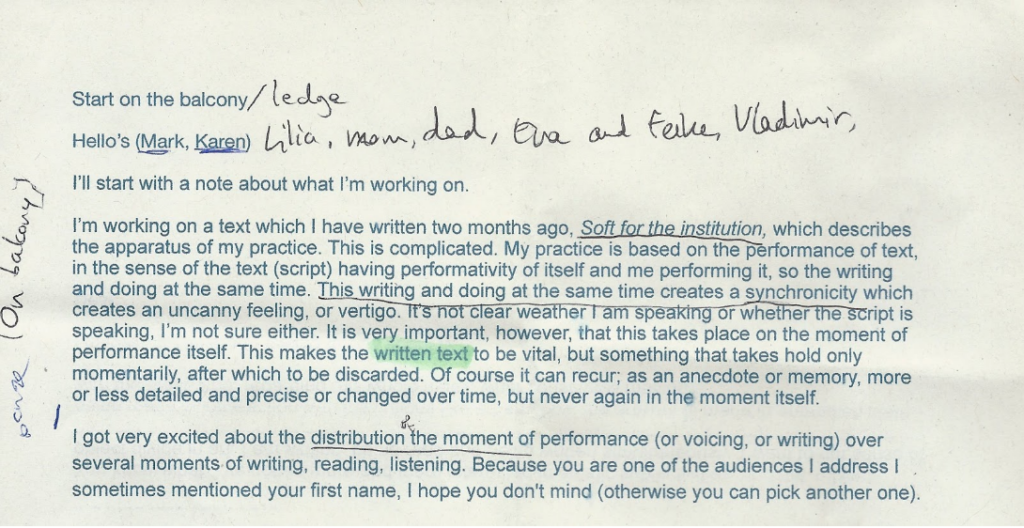 Start on the balcony/ledge
Hello's (Mark, Karen) Lilia, mom, dad, Eva and Feike, Vladimir,
I'll start with a note about what I'm working on.
I'm working on a text which I have written two months ago, Soft for the institution, which describes
the apparatus of my practice. This is complicated. My practice is based on the performance of text,
in the sense of the text (script) having performativity of itself and me performing it, so the writing
and doing at the same time. This writing and doing at the same time creates a synchronicity which
creates an uncanny feeling, or vertigo. It's not clear weather I am speaking or whether the script is
speaking, I'm not sure either. It is very important, however, that this takes place on the moment of
performance itself. This makes the written text to be vital, but something that takes hold only
momentarily, after which to be discarded. Of course it can recur; as an anecdote or memory, more
or less detailed and precise or changed over time, but never again in the moment itself.
I got very excited about the distribution of the moment of performance (or voicing, or writing) over
several moments of writing, reading, listening. Because you are one of the audiences I address I
sometimes mentioned your first name, I hope you don't mind (otherwise you can pick another one).
(On balcony)